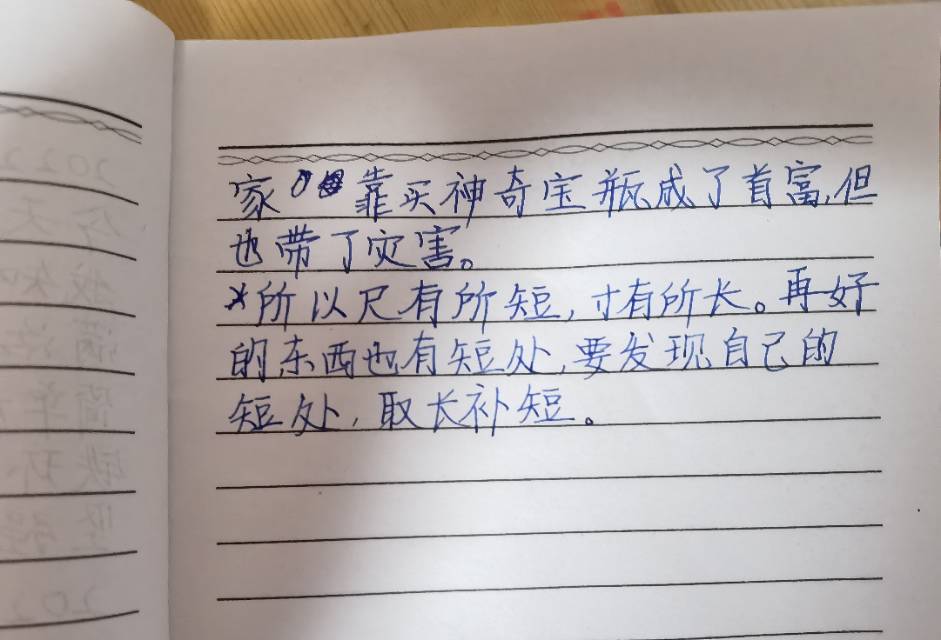 家靠买神奇宝瓶成了首富,但
也带了灾害。
*所以尺有所短,寸有所长。再好
的东西也有短处,要发现自己的
短处,取长补短。
2022
今天